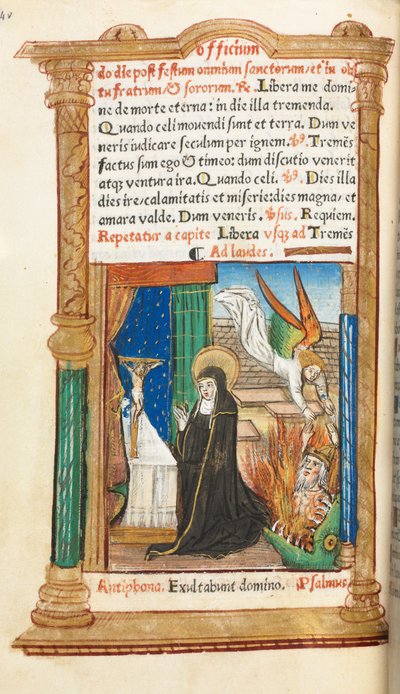 officium
do die post festum omnium sanctorum/et in obi
tu fratrum/& sororum. R. Libera me domi,
ne de morte eterna: in die illa tremenda.
Quando celi mouendi sunt et terra. Dum ve
neris iudicare seculum per ignem. Tremēs
factus sum ego & timeo: dum discutio venerit
atq; ventura ira. Quando celi. Dies illa
dies ire/calamitatis et miserie:dies magna/et
amara valde. Dum veneris. Requiem.
Repetatur a capite Libera vsq; ad Tremēs
Ad laudes.
Antiphona. Exultabunt domino. Psalmus